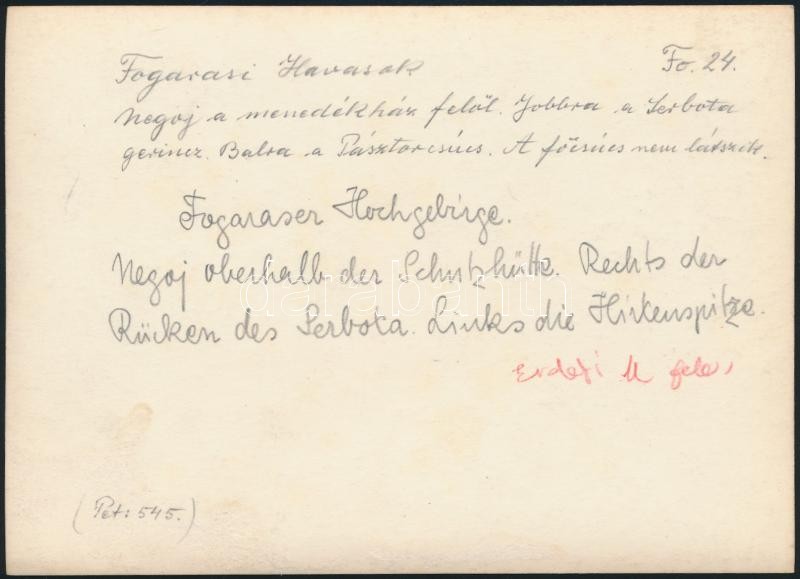 Fogarasi Havasok
Fo. 24.
Negoj a menedékház felől. Jobbra a Serbota
gerincz. Balra a Pásztorcsúcs. A főcsúcs nem látszik.
Fogaraser Hochgebirge.
Negoj oberhalb der Schutzhütte. Rechts der
Rücken des Serbota. Links die Hirtenspitze.
darabanth
(Pet: 545.)